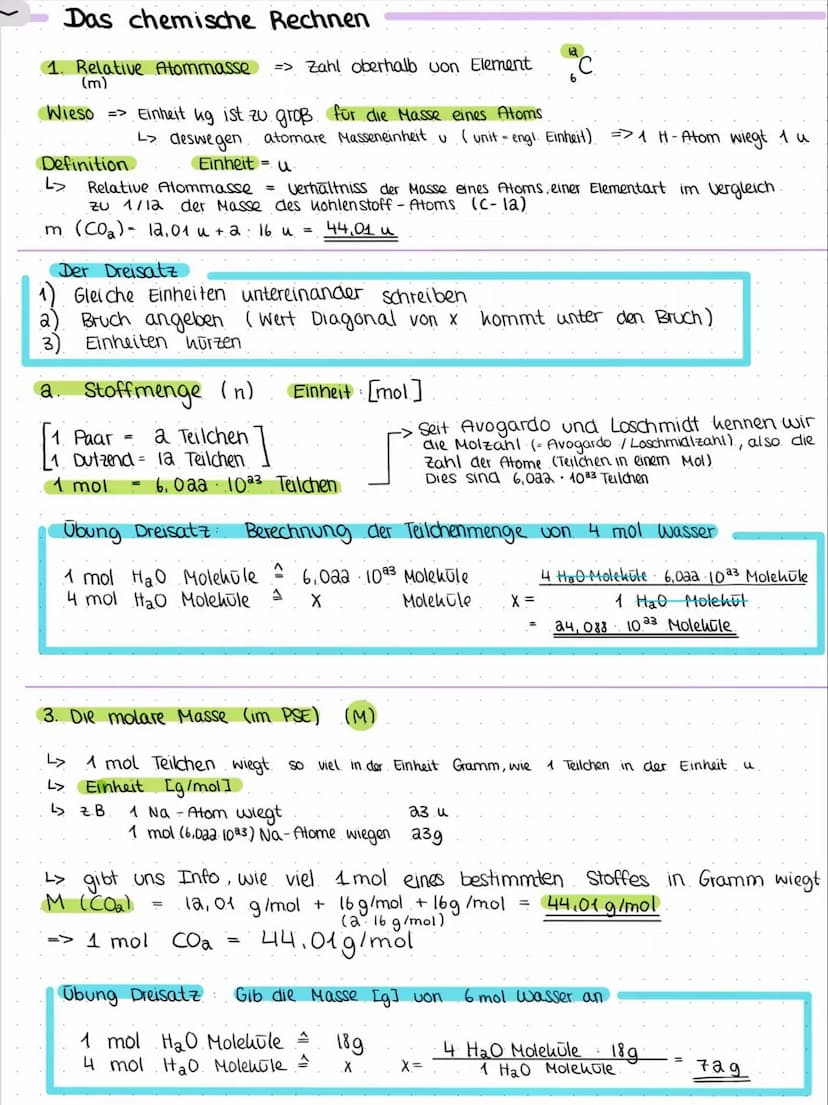 Das chemische Rechnen
1. Relative Atommasse => Zahl oberhalb von Element ¹²₆C
(m)
Wieso => Einheit kg ist zu groß für die Masse eines Atoms
↳ deswegen atomare Masseneinheit u (unit = engl. Einheit) => 1 H-Atom wiegt 1 u
Definition Einheit = u
↳ Relative Atommasse = Verhältniss der Masse eines Atoms einer Elementart im Vergleich
zu 1/12 der Masse des Kohlenstoff-Atoms (C-12)
m (CO₂) = 12,01 u + 2 · 16 u = 44,01 u
Der Dreisatz
1) Gleiche Einheiten untereinander schreiben
2) Bruch angeben (Wert Diagonal von x kommt unter den Bruch)
3) Einheiten kürzen
2. Stoffmenge (n) Einheit: [mol]
[1 Paar = 2 Teilchen]
[1 Dutzend = 12 Teilchen]
1 mol = 6,022 · 10²³ Teilchen
-> Seit Avogardo und Loschmidt kennen wir
die Molzahl (= Avogardo / Loschmidtzahl), also die
Zahl der Atome (Teilchen in einem Mol)
Dies sind 6,022 · 10²³ Teilchen
Übung Dreisatz: Berechnung der Teilchenmenge von 4 mol Wasser
1 mol H₂O Moleküle ≙ 6,022 · 10²³ Moleküle
4 mol H₂O Moleküle ≙ x Moleküle
x = 4 H₂O Moleküle · 6,022 · 10²³ Moleküle
1 H₂O Molekül
= 24,088 · 10²³ Moleküle
3. Die molare Masse (im PSE) (M)
↳ 1 mol Teilchen wiegt so viel in der Einheit Gramm, wie 1 Teilchen in der Einheit u
↳ Einheit [g/mol]
↳ z.B. 1 Na-Atom wiegt 23 u
1 mol (6,022·10²³) Na-Atome wiegen 23g
↳ gibt uns Info, wie viel 1mol eines bestimmten Stoffes in Gramm wiegt
M (CO₂) = 12,01 g/mol + 16g/mol + 16g/mol = 44,01 g/mol
(2·16 g/mol)
=> 1 mol CO₂ = 44,01g/mol
Übung Dreisatz: Gib die Masse [g] von 6 mol Wasser an
1 mol H₂O Moleküle ≙ 18g
4 mol H₂O Moleküle ≙ x
x = 4 H₂O Moleküle · 18g
1 H₂O Moleküle
= 72g